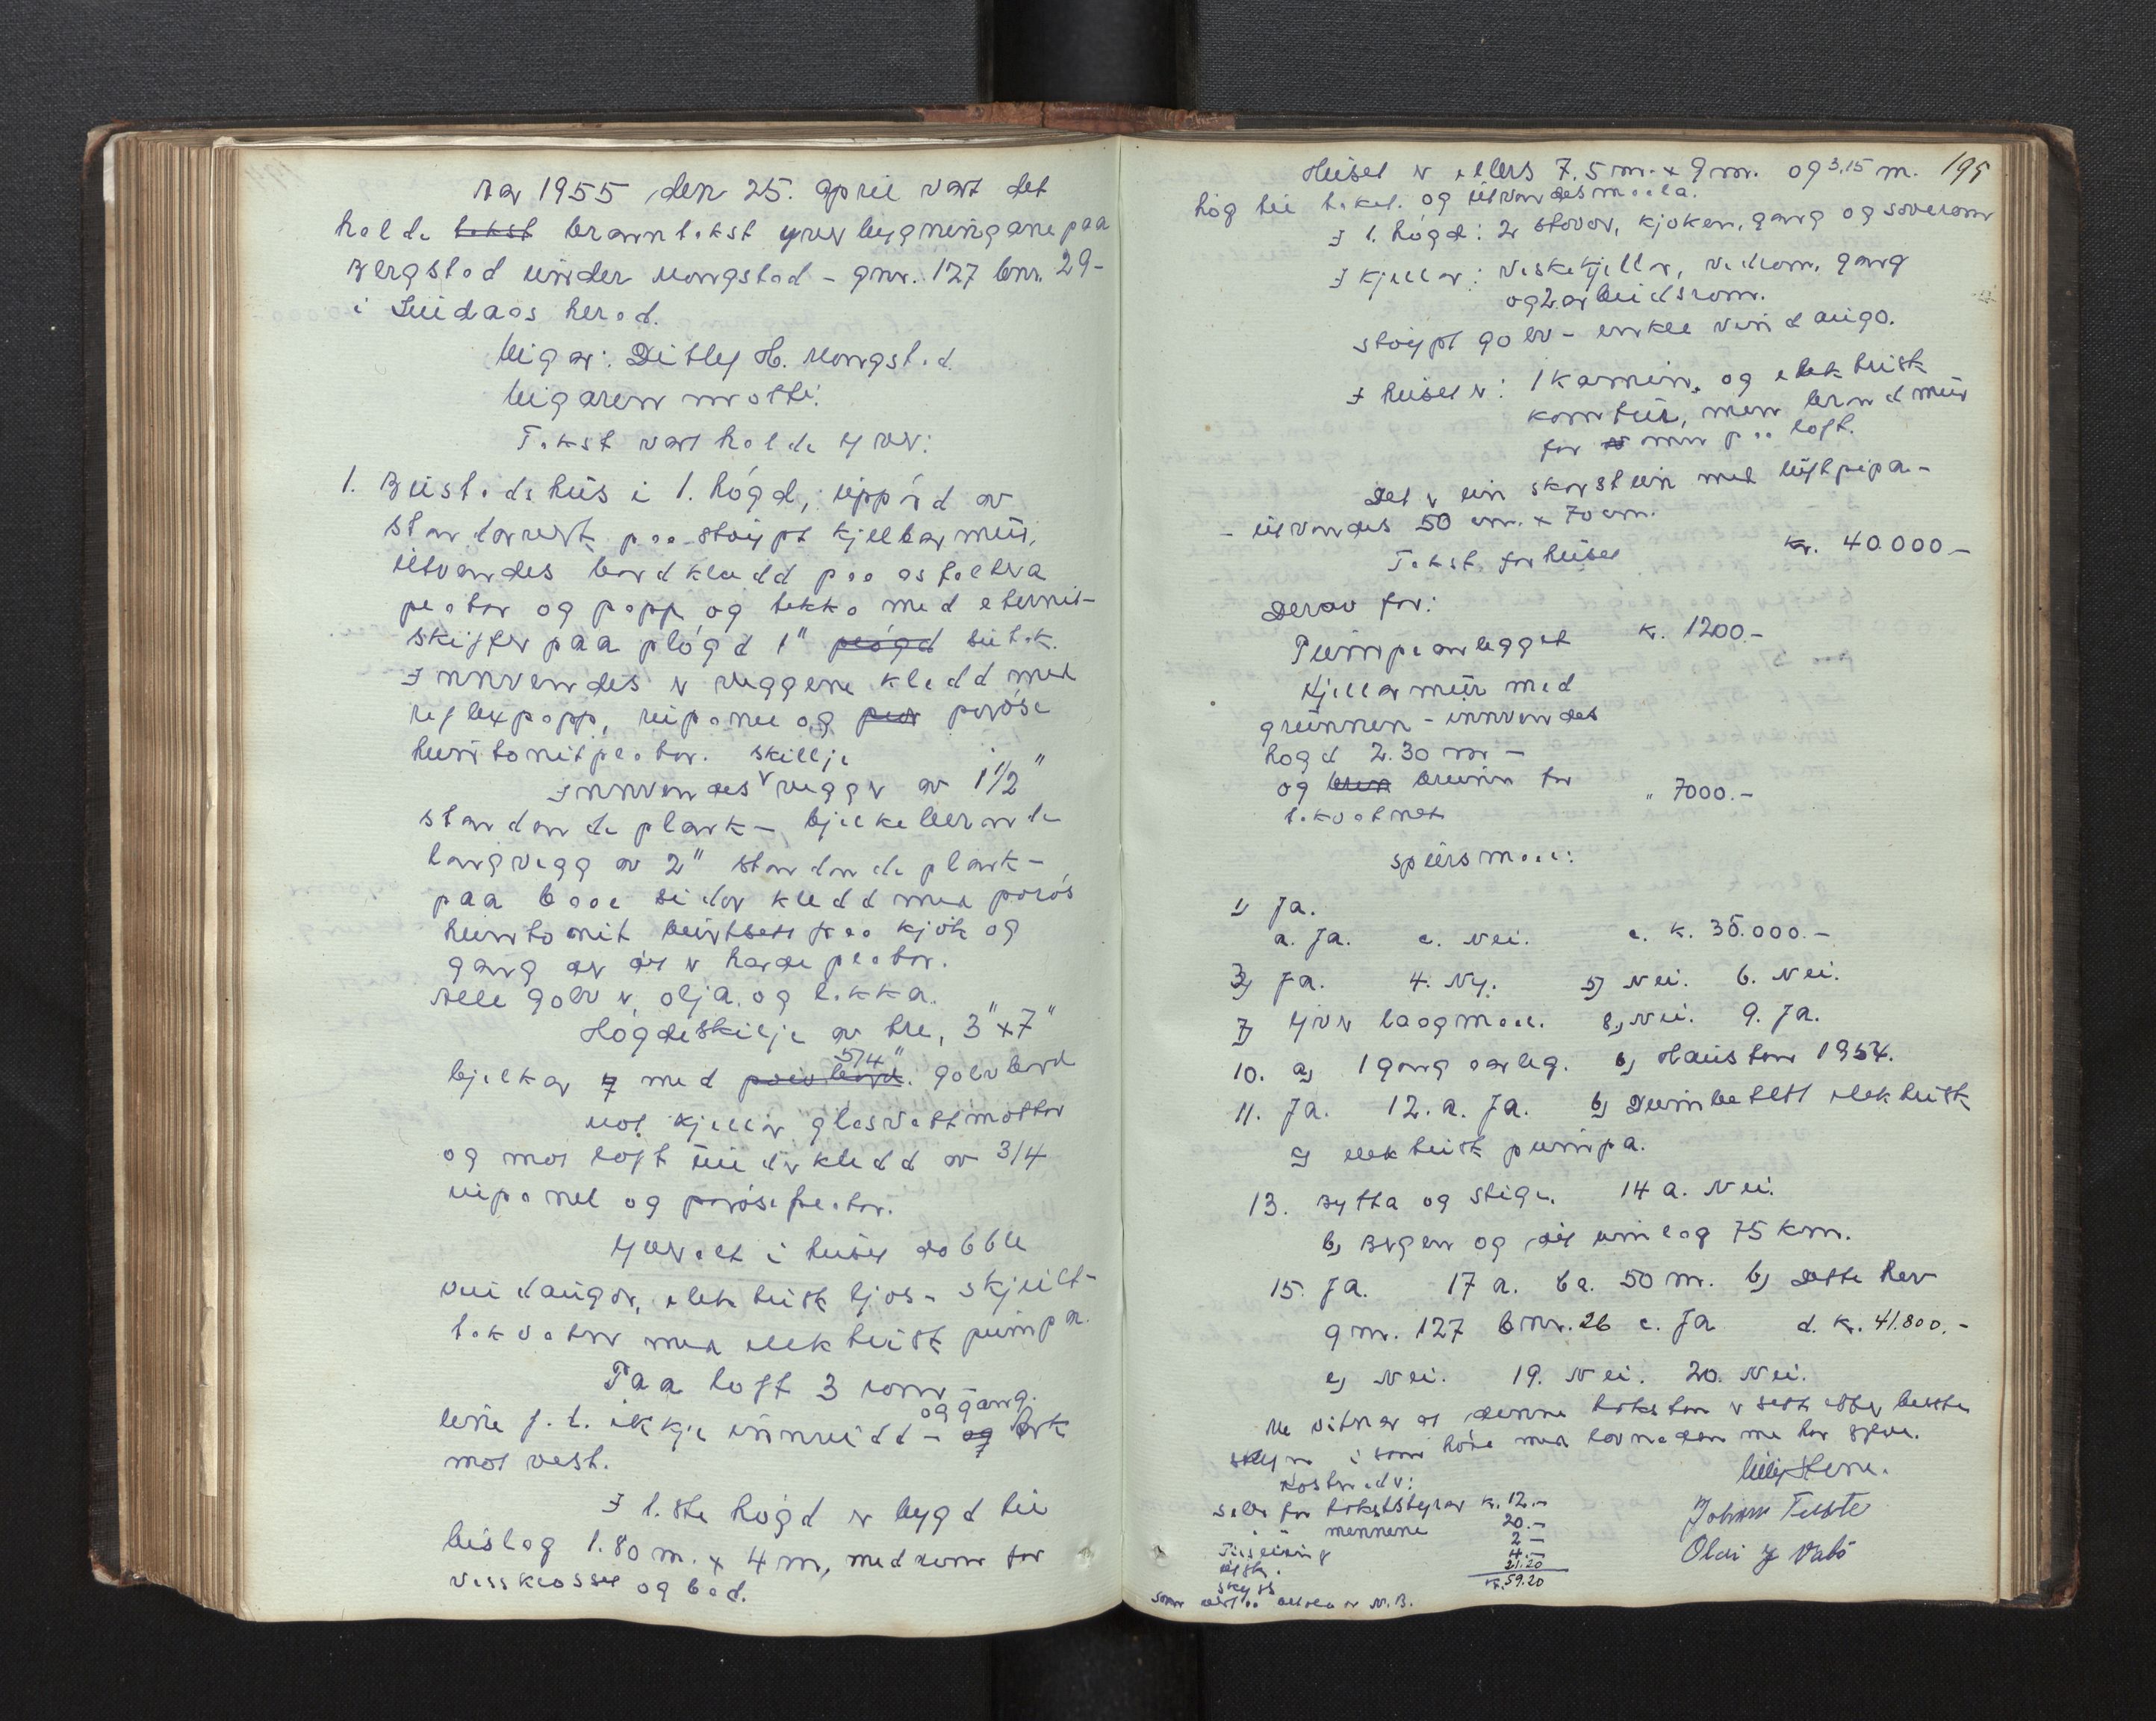 Aar 1955 den 25. april vart det
halde takst branntakst yver bygningane paa
Bergstad under Mongstad - gnr. 127 bnr. 29-
i Lindaas herad.
Eigar: Ditlef H. Mongstad.
Eigaren møtte.
Takst vart halde yver:
1. Bustadshus i 1. høgd, uppørd av
standarverk paa støypt kjellarmur,
utvendes bordkledd paa asfaltera
plator og papp og tekka med eternit-
skiffer paa pløgd 1" pløgd sutak.
Innvendes er veggene kledd med
reflexpapp, rupanel og por porøse
huntonitplator. skilje
Innvendes vegger av 1 1/2"
standande plank - bjelkeberande
langvegg av 2" standande plank -
paa baae sidor kledd med porøs
huntonit buintsett paa kjøk og
gang der det er harde plator.
Alle golv er olja og lakka.
Høgdeskilje av tre, 3" x 7"
5/4"
bjelkar med golvbord
Mot kjellar glasvattmattor
og mot loft underkledd av 3/4
rupanel og porøse plator.
Yveralt i huset dobble
vindaugor, elektrisk ljos - skjult-
takvatn med elektrisk pumpa.
Paa loft 3 rom
og gang.
enno f. t. ikkje innreidd - og ark
mot vest.
I 1.ste høgd er bygd til
bislag 1.80 m. x 4 m, med rom for
vassklosset og bad.
195
Huset er ellers 7.5 m. x 9 m. og 3.15 m.
høg til taket. og utvendes maala.
I 1. høgd: 2 stovor, kjøken, gang og soverom
I kjellar: vaskekjellar, vedrom, gang
og 2 arbeidsrom.
støypt golv - enkle vindaugo.
I huset er: 1 kamin, og elektrisk
komfur, men brandmur
for omn paa loft.
Det er ein skorstein med luftpipa -
- utvendes 50 cm. x 70 cm.
Takst for huset kr. 40.000 -
Derav for:
Pumpeanlegget k. 1200.-
Kjellarmur med
grunnen - innvendes
høgd 2.30 m -
og brun brunn for
takvatnet " 7000.-
Spursmaal:
1) Ja.
a. Ja. c. Nei. e. k. 35.000.-
3) Ja. 4. Ny. 5) Nei. 6. Nei.
7) Yver laagmaal. 8) Nei. 9. Ja.
10. a) 1 gang aarleg. b) Hausten 1954.
11. Ja. 12. a. Ja. b) Dumbeltst elektrisk
c) elektrisk pumpa.
13. Bytta og stige. 14 a. Nei.
b) Bergen og dit umlag 75 km.
15. Ja. 17 a. Ca. 50 m. b) Dette her
gnr. 127 bnr. 26 c. Ja d. k. 41.800.-
e) Nei. 19. Nei. 20. Nei.
Me vitnar at denne taksten er sett etter beste
skjøn i samhøve med lovnaden me har gjeve.
Kostnader:
Salær for takststyrar k. 12.-
" " mennene 20.-
Tinglesing 2 -
Utskr. 4.-
Skyss 21.20
k. 59.20
som vert aa betala av N.B.
Johann Feste